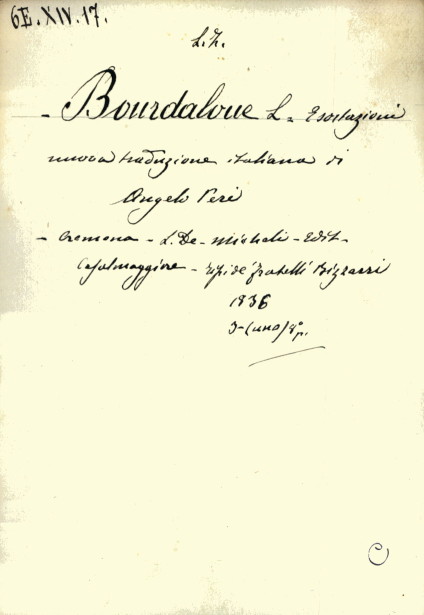 6E.XIV.17.
L.I.
- Bourdaloue L - Esortazioni
nuova traduzione italiana di
Angelo Peri
- Cremona - L. De-Micheli - Edit -
Casalmaggiore - Tipi de' fratelli Bizzarri
1836
(uno) 8° p.
C